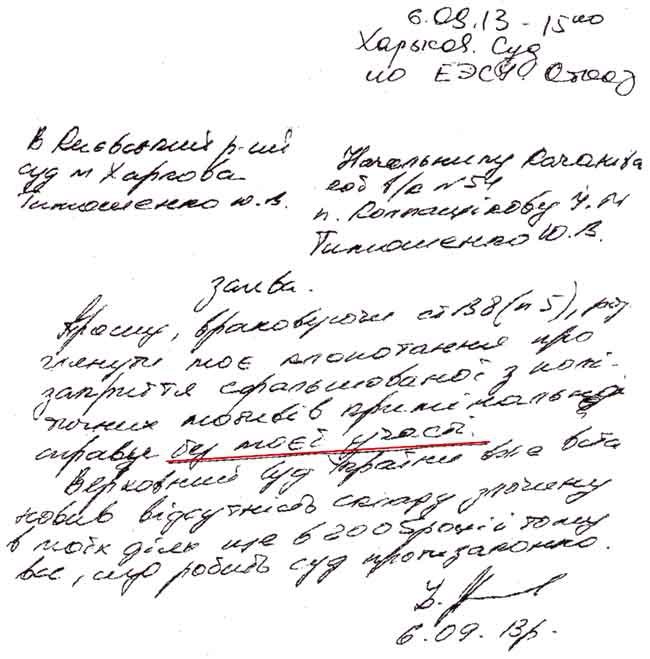 6.09.13 - 15 00
Харьков. Суд
по ЕЭСУ.
В Києвський р-ний
суд м Харкова
Тимошенко Ю.В.
Начальнику Качанівс
кої в/к №54
п. Колпащікову І.
Тимошенко Ю.В.
заява.
Прошу, враховуючи ст (п 5), роз
глянути моє клопотання про
закриття сфальшованої з полі-
тичних мотивів кримінальної
справи без моєї участі.
Верховний суд України вже вста
новив відсутність складу злочину
в моїх діях ще в 2005 році і тому
все, що робить суд протизаконно.
6.09.13р.